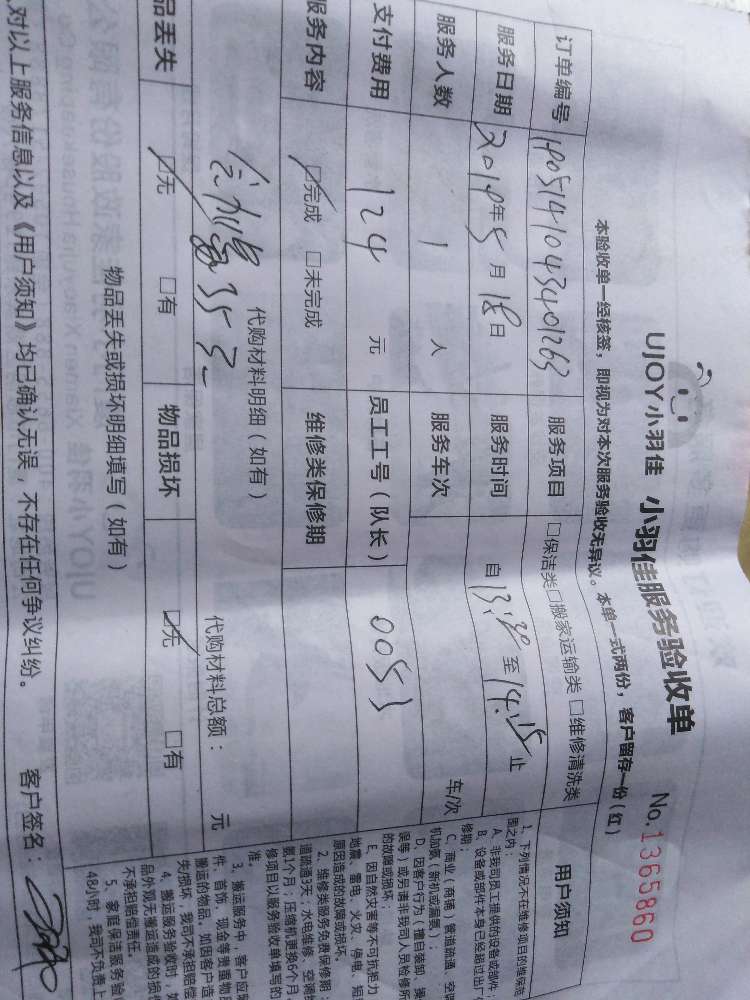 UJOY小羽佳 小羽佳服务验收单 No.1365860
本验收单一经核签，即视为对本次服务验收无异议。本单一式两份，客户留存一份（红）
订单编号 服务项目 □保洁类□搬家运输类 □维修清洗类
服务日期 年5月18日 服务时间 自13:30至14:15止
服务人数 1 人 服务车次 车/次
支付费用 124 元 员工工号（队长） 0053
服务内容 ☑完成 □未完成 维修类保修期
代购材料明细（如有） 代购材料总额： 元
35元
品丢失 ☑无 □有 物品损坏 ☑无 □有
物品丢失或损坏明细填写（如有）
对以上服务信息以及《用户须知》均已确认无误，不存在任何争议纠纷。 客户签名：
用户须知
1、下列情况不在维修项目的维保范
围之内：
A、非我司员工提供的设备或部件；
B、设备或部件本身已经超过出厂
修期；
C、商业（商铺）管道疏通，空调
机加氨（新机或漏氨）；
D、因客户行为（擅自装卸、操
误等）或另请非我司人员检修所
的故障或损坏；
E、因自然灾害等不可抗拒力
地震、雷电、火灾、停电、短
原因造成的故障或损坏。
2、维修类服务免费保修期：
道疏通3天；水电维修、空调
氨1个月，压缩机更换6个月，
修项目以服务验收单填写的
准。
3、搬运服务中，客户应
件、首饰、现金等贵重物品
搬运的物品，如因客户造
失/损坏，我司不承担赔偿
4、搬运服务验收时，如
品外观无搬运造成的损
不承担赔偿责任。
5、家庭保洁服务验
48小时，我司不负责上